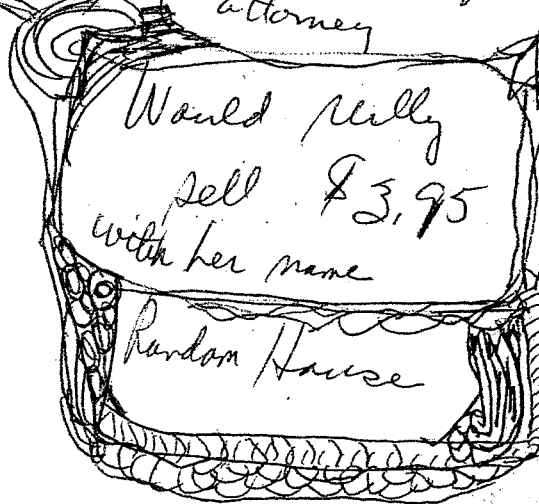 attorney
Would really
sell $3.95
with her name
Random House